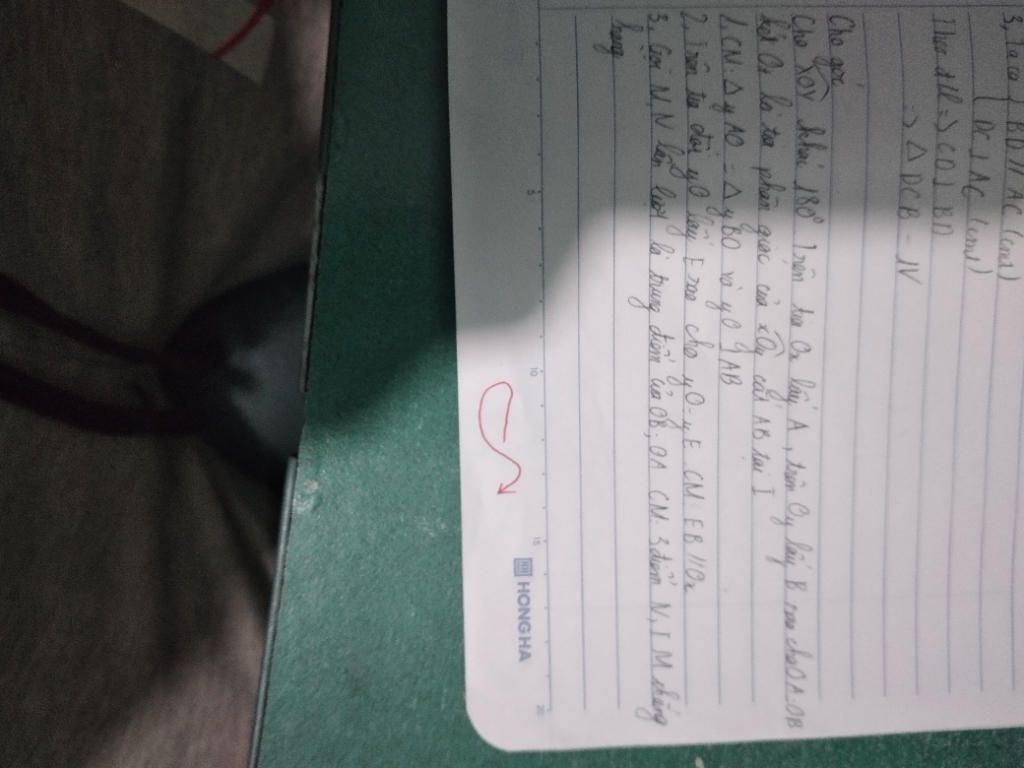 3, Ta có { BD // AC (cmt)
{ DC ⊥ AC (cmt)
Theo đl => CD ⊥ BD
=> △ DCB - IV
Cho góc
Cho xOy khác 180° Trên tia Ox lấy A, trên Oy lấy B sao cho OA=OB
kết Oz là tia phân giác của xOy cắt AB tại I
1. CM: △ yAO = △ yBO và yO ⊥ AB
2. Trên tia đối yO lấy E sao cho yO = yE CM: EB // Ox
3, Gọi N, N lần lượt là trung điểm của OB; OA CM: 3 điểm N, I M thẳng
hàng
5
10
15
20
HH HONG HA